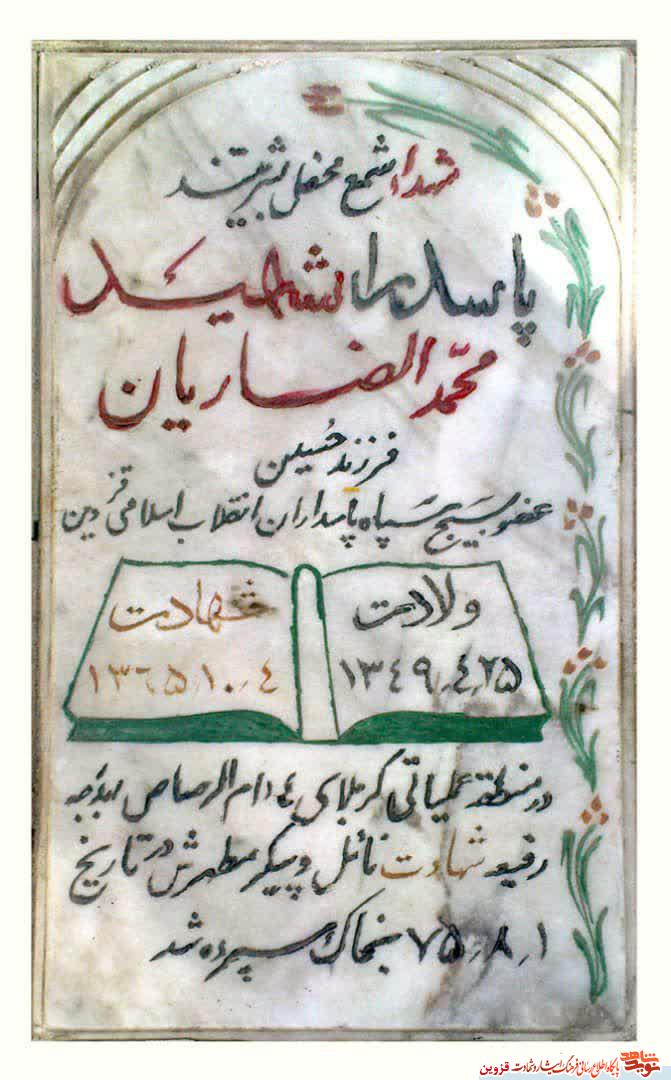 شهداء شمع محفل بشریتند
پاسدار شهید
محمّد الضاریان
فرزند حسین
عضو بسیج سپاه پاسداران انقلاب اسلامی قزوین
ولادت
۱۳۴۹٫۴٫۲۵
شهادت
۱۳۶۵٫۱۰٫۴
در منطقه عملیاتی کربلای ۴ ام الرصاص بدرجه
رفیع شهادت نائل و پیکر مطهرش در تاریخ
۷۵٫۸٫۱ بخاک سپرده شد
نوید شاهد
پایگاه اطلاع رسانی فرهنگ ایثار و شهادت قزوین